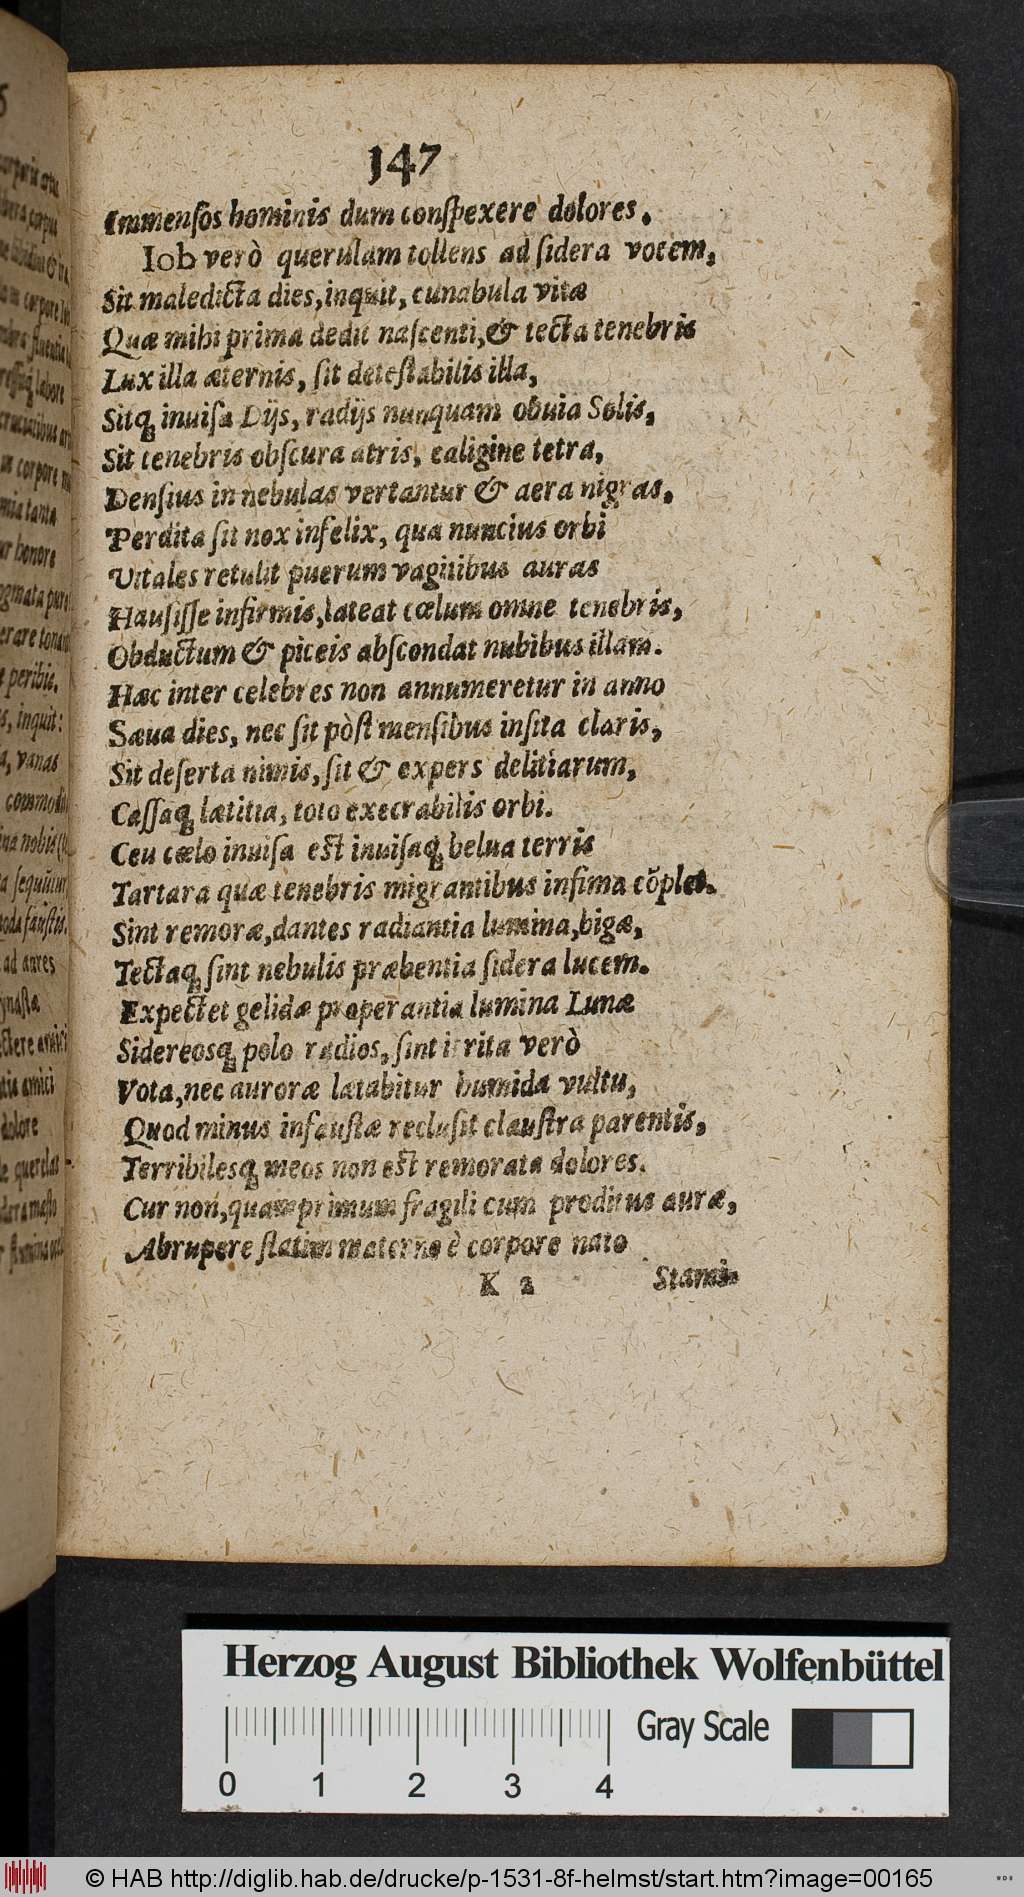 147
Immensos hominis dum conspexere dolores.
Iob verò querulam tollens ad sidera vocem,
Sit maledicta dies, inquit, cunabula vitæ
Quæ mihi prima dedit nascenti, & tecta tenebris
Lux illa æternis, sit detestabilis illa,
Sitq; inuisa Dijs, radijs nunquam obuia Solis,
Sit tenebris obscura atris, caligine tetra,
Densius in nebulas vertantur & aera nigras.
Perdita sit nox infelix, qua nuncius orbi
Vitales retulit puerum vagitibus auras
Hausisse infirmis, lateat cœlum omne tenebris,
Obductum & piceis abscondat nubibus illam.
Hæc inter celebres non annumeretur in anno
Sæua dies, nec sit pòst mensibus insita claris,
Sit deserta nimis, sit & expers delitiarum,
Cassaq; lætitia, toto execrabilis orbi.
Ceu cœlo inuisa est inuisaq; belua terris
Tartara quæ tenebris migrantibus infima cõplet.
Sint remoræ, dantes radiantia lumina, bigæ,
Tectaq; sint nebulis præbentia sidera lucem.
Expectet gelidæ properantia lumina Lunæ
Sidereosq; polo radios, sint irrita verò
Vota, nec auroræ lætabitur humida vultu,
Quod minus infaustæ reclusit claustra parentis,
Terribilesq; meos non est remorata dolores.
Cur non, quamprimum fragili cum proditus auræ,
Abrupere statim materno è corpore nato
K 2 Stami-
corpore
labore
corpore
tanta
honore
peribit.
inquit:
vanas
nobis
ad aures
amici
dolore
querelas
Herzog August Bibliothek Wolfenbüttel
Gray Scale
0 1 2 3 4
© HAB http://diglib.hab.de/drucke/p-1531-8f-helmst/start.htm?image=00165